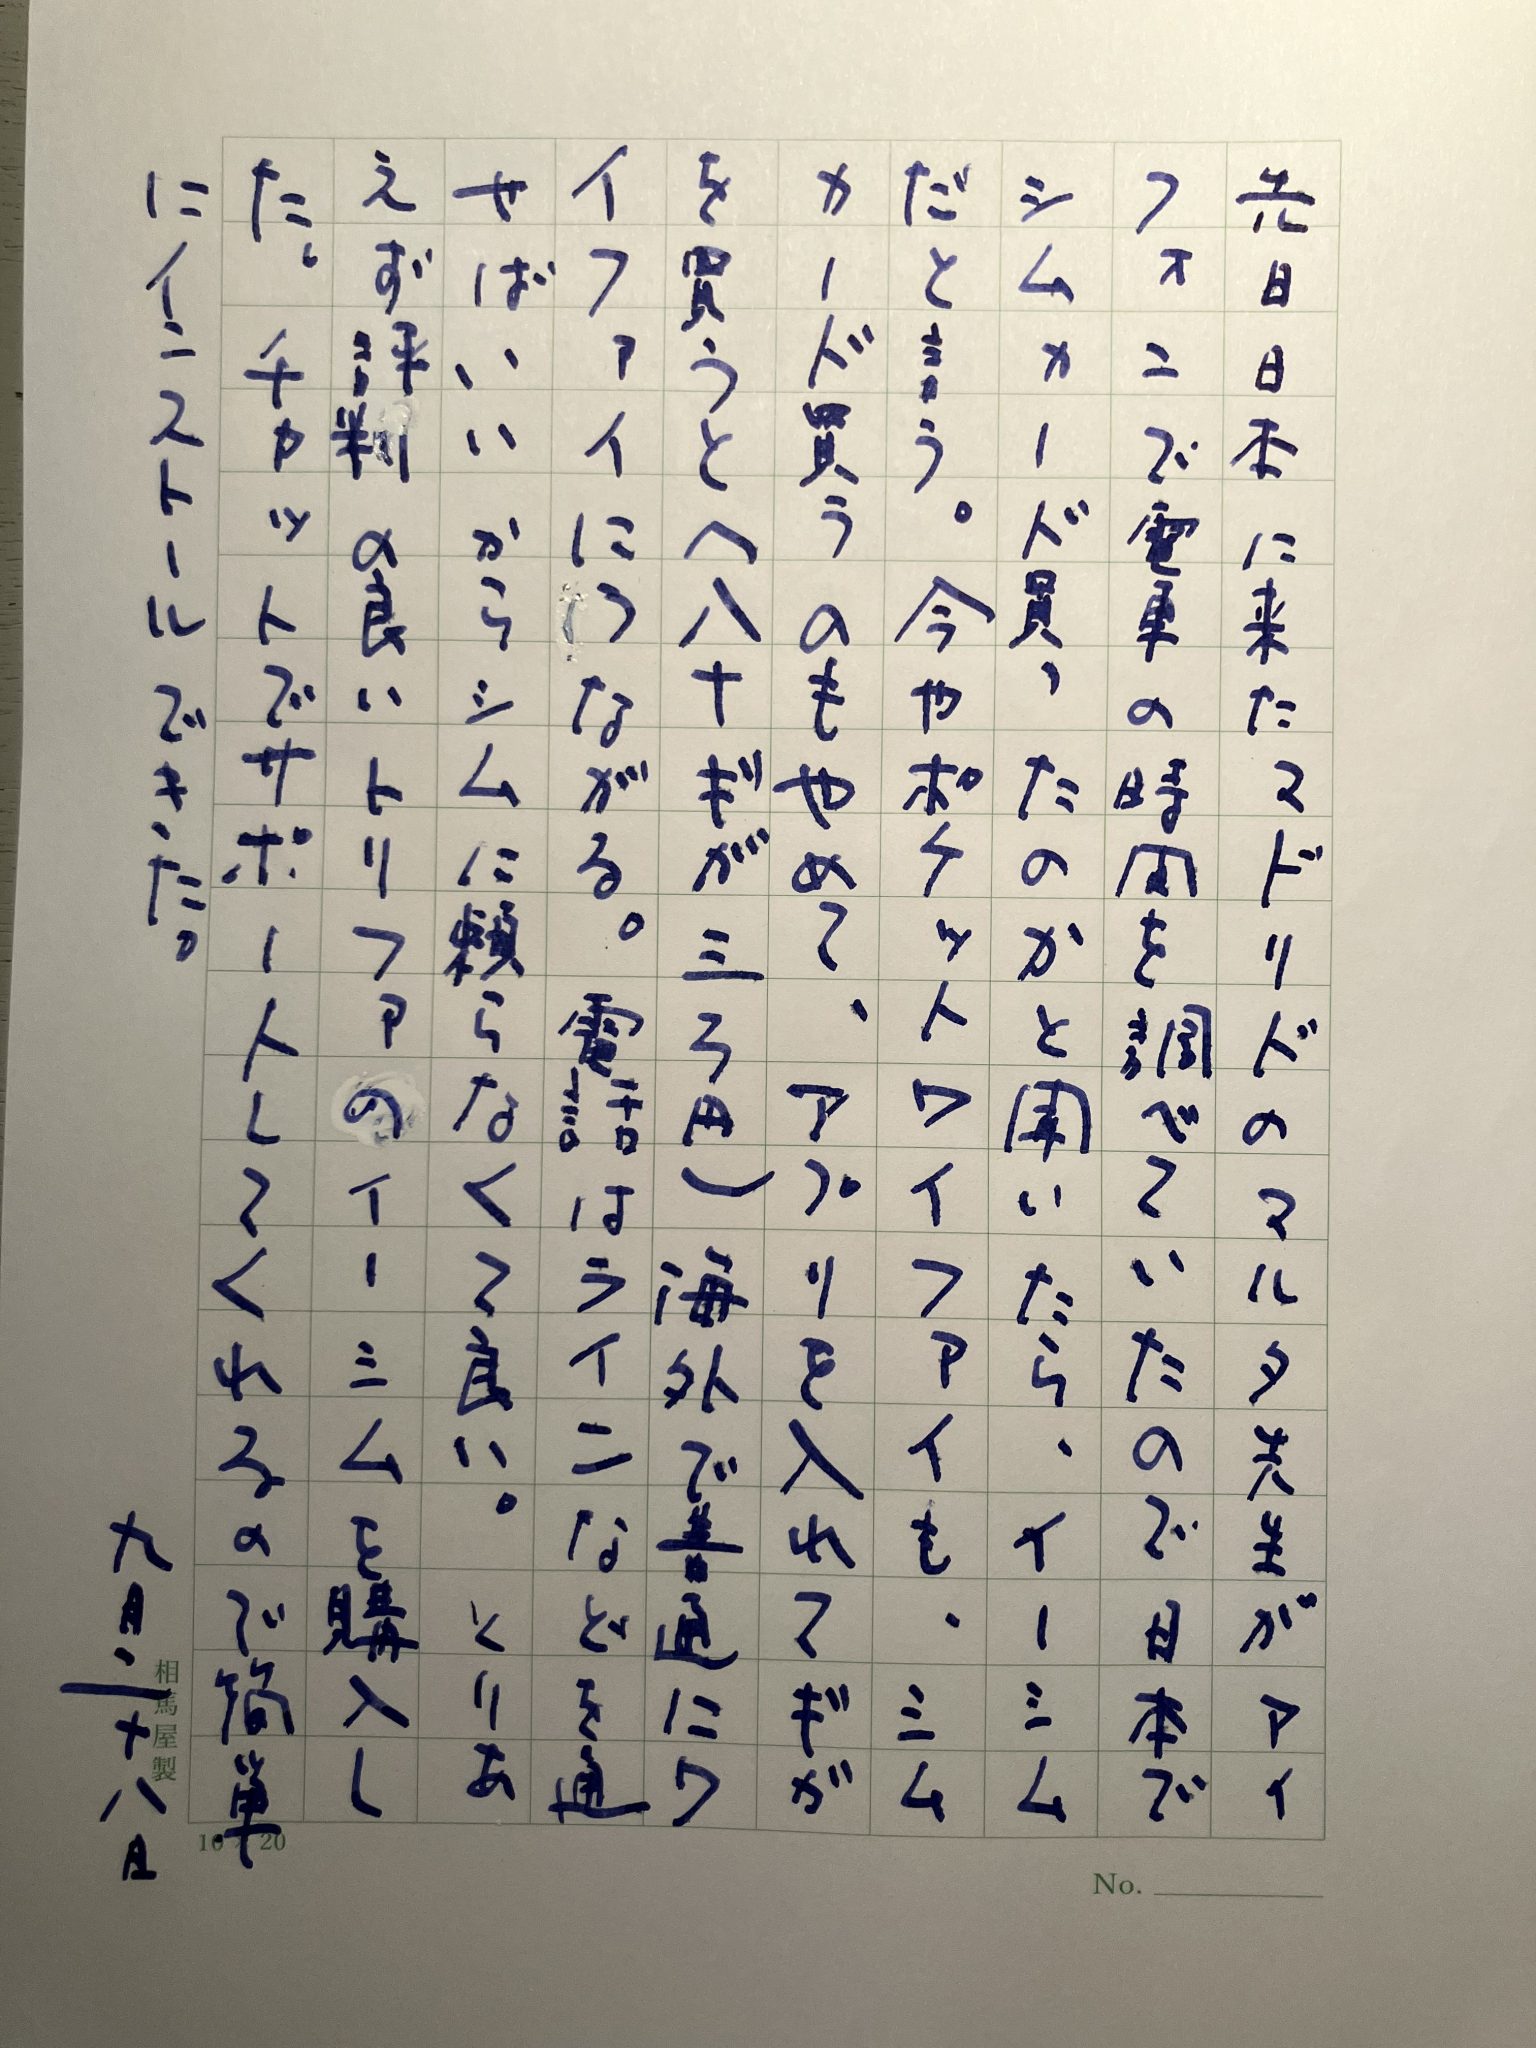 先日日本に来たマドリドのマルタ先生がアイ
フォニで電車の時間を調べていたので日本で
シムカード買ったのかと聞いたら、イーミシム
だと言う。今やポケットワイファイも、ミシム
カード買うのもやめて、アプリを入れてギガ
を買うと(八十ギガ三ろ円)海外で普通にワ
イファイにつながる。電話はラインなどを通
せばいいからシムに頼らなくて良い。とりあ
えず評判の良いトリファのイーシムを購入し
た。チカットでサポートしてくれるので簡単
にインストールできった。
九月二十八日
相馬屋製
10 20
No.